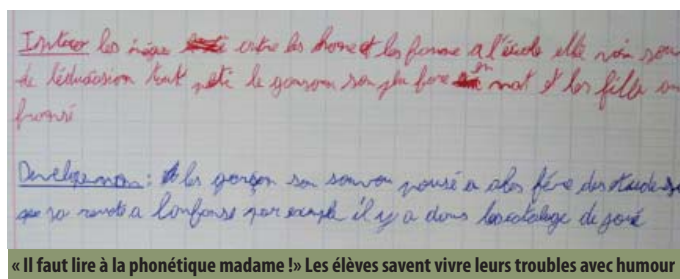 Intro les inége entre les home et les famme a l'école elle vin sou
de léducasion tout peti le garsom son plu fore en mat et les fille on
fronsé
Develepemon: les garçon son souvon pousé a ales fére des étude
que sa remote a lonfonse par exemple il y a dans les cataloge de joué
« Il faut lire à la phonétique madame !» Les élèves savent vivre leurs troubles avec humour